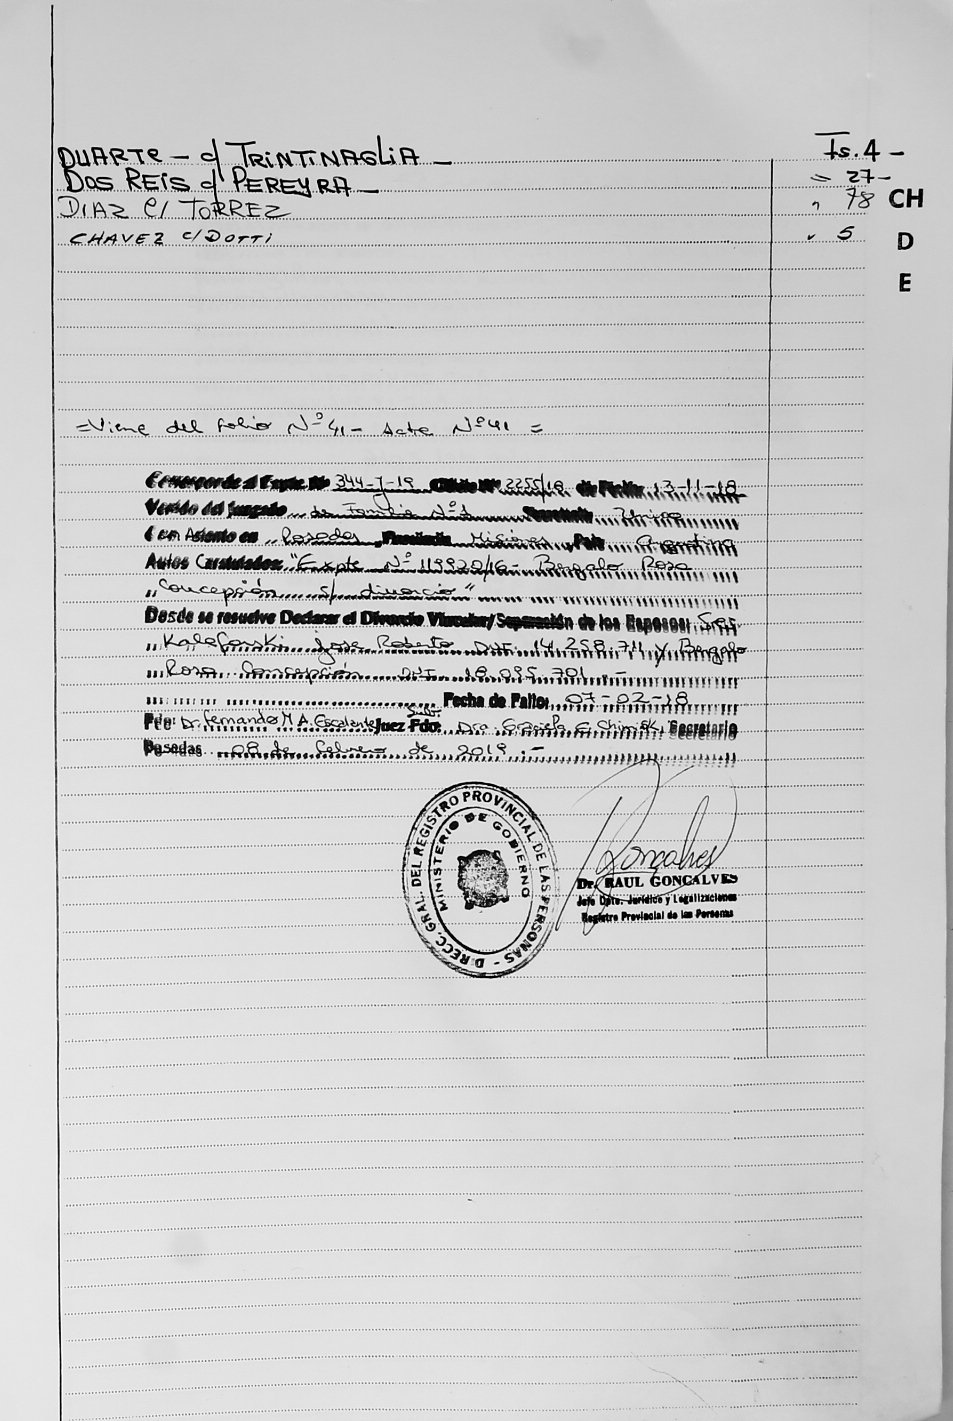 DUARTE - c/ TRINTINAGLIA - Fs. 4 -
DOS REIS c/ PEREYRA - " 27 -
DIAZ c/ TORREZ " 78 CH
CHAVEZ c/ DOTTI " 5 D
E
= Viene del folio Nº 41 - Acta Nº 41 =
Corresponde al Expte Nº 344-J-19 Oficio Nº 2255/18 de Fecha 13-11-18
Venido del Juzgado de Familia Nº 1 Secretaría Unica
Con Asiento en Posadas Provincia Misiones País Argentina
Autos Caratulados: "Expte Nº 119920/16 - Bergalo Rosa
Concepción s/ divorcio"
Donde se resuelve Declarar el Divorcio Vincular/Separación de los Esposos: Sres
José Roberto D.N.I. 14.258.711 y Bergalo
Rosa Concepción D.N.I. 18.095.701 . -
Fecha de Fallo: 07-02-18
Fdo: Dr. Fernando M. A. Escalante Juez Fdo: Subr. Dra. Graciela E. Secretario
Posadas 08 de febrero de 2019 . -
DIRECC. GRAL. DEL REGISTRO PROVINCIAL DE LAS PERSONAS -
MINISTERIO DE GOBIERNO
Dr. RAUL GONCALVES
Jefe Dpto. Jurídico y Legalizaciones
Registro Provincial de las Personas